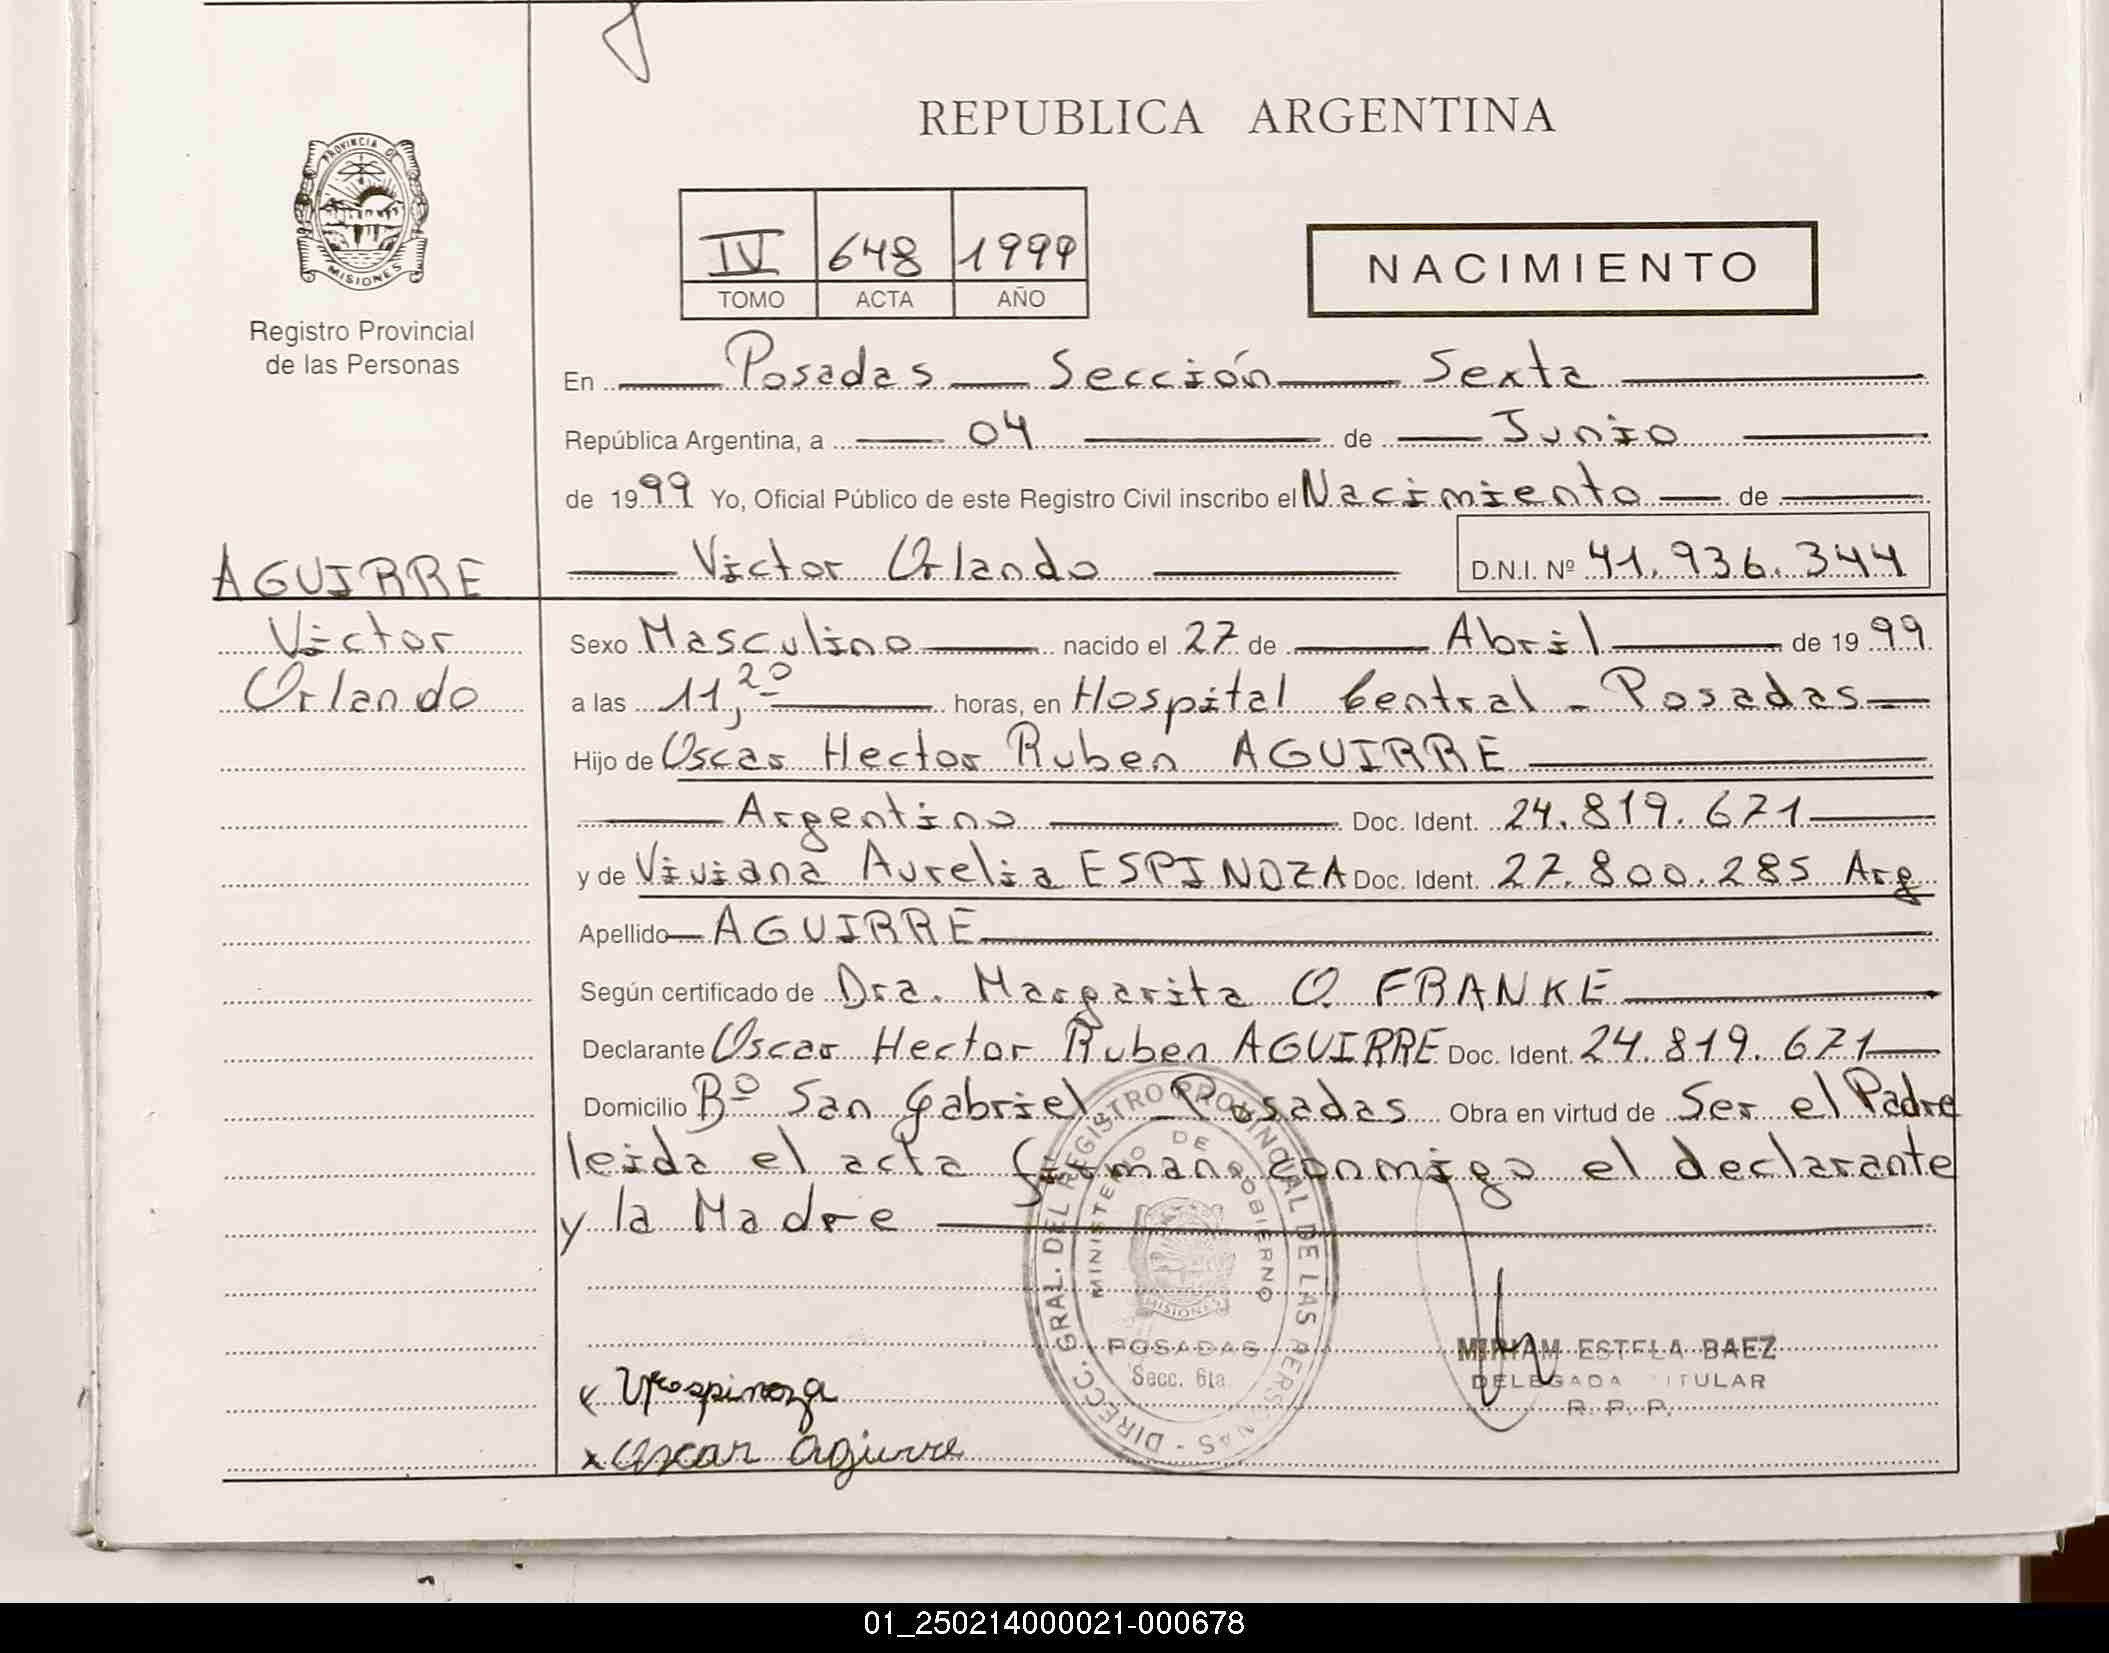 REPUBLICA ARGENTINA
PROVINCIA DE
MISIONES
Registro Provincial
de las Personas
IV 648 1999
TOMO ACTA AÑO
NACIMIENTO
En Posadas Sección Sexta
República Argentina, a 04 de Junio
de 1999 Yo, Oficial Público de este Registro Civil inscribo el Nacimiento de
Victor Orlando D.N.I. Nº 41.936.344
AGUIRRE
Victor
Orlando
Sexo Masculino nacido el 27 de Abril de 1999
a las 11,20 horas, en Hospital Central - Posadas
Hijo de Oscar Hector Ruben AGUIRRE
Argentino Doc. Ident. 24.819.671
y de Viviana Aurelia ESPINOZA Doc. Ident. 27.800.285 Arg
Apellido AGUIRRE
Según certificado de Dra. Margarita O. FRANKE
Declarante Oscar Hector Ruben AGUIRRE Doc. Ident. 24.819.671
Domicilio Bº San Gabriel - Posadas Obra en virtud de Ser el Padre
leida el acta firman conmigo el declarante
y la Madre
DIRECC. GRAL. DEL REGISTRO PROVINCIAL DE LAS PERSONAS
MINISTERIO DE GOBIERNO
MISIONES
POSADAS
Secc. 6ta
MIRIAM ESTELA BAEZ
DELEGADA TITULAR
R. P. P.
x Oscar Aguirre
01_250214000021-000678